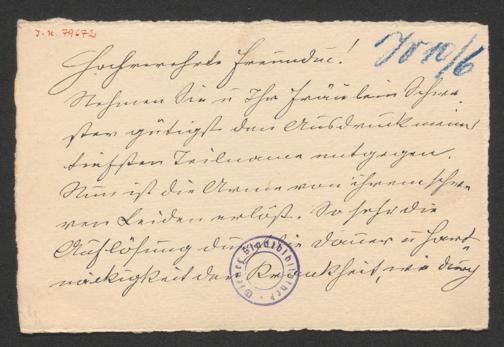 J.N. 79672
Hochverehrte Freundin!
Nehmen Sie u Ihr Fräulein Schwe
ster gütigst den Ausdruck meiner
tiefsten Teilname entgegen.
Nun ist die Arme von ihrem schwe
ren Leiden erlöst. So sehr die
Auflösung durch die Dauer u Hart
näckigkeit der Krankheit, wie durch
Wiener Stadtbibliothek